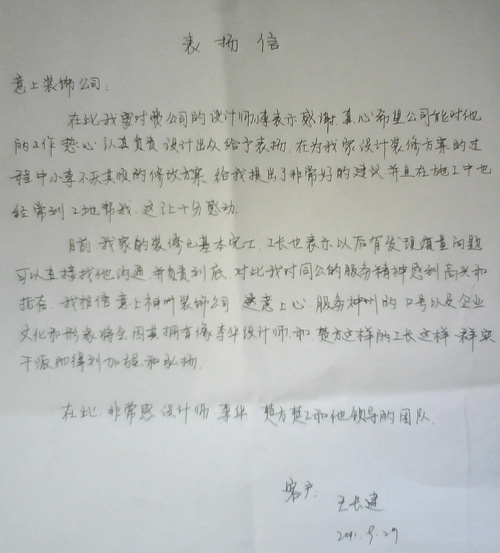 表扬信
意上装饰公司:
在此我要对贵公司的设计师小李表示感谢,真心希望公司能对他
的工作热心 认真负责 设计出众给予表扬,在为我家设计装修方案的过
程中小李不厌其烦的修改方案,给我提出了非常好的建议并且在施工中也
经常到工地帮我,这让十分感动.
目前,我家的装修已基本完工,工长也表示以后有发现质量问题
可以直接找他沟通,并负责到底,对此我对同公的服务精神感到高兴和
我相信意上神州装饰公司 意上心,服务神州的口号以及企业
文化和形象将会因其拥有像李华设计师,和楚方这样的工长这样一群实
干派而得到加强和弘扬.
在此,非常感设计师 李华 楚方楚工和他领导的团队.
客户: 王长建
2011.9.29